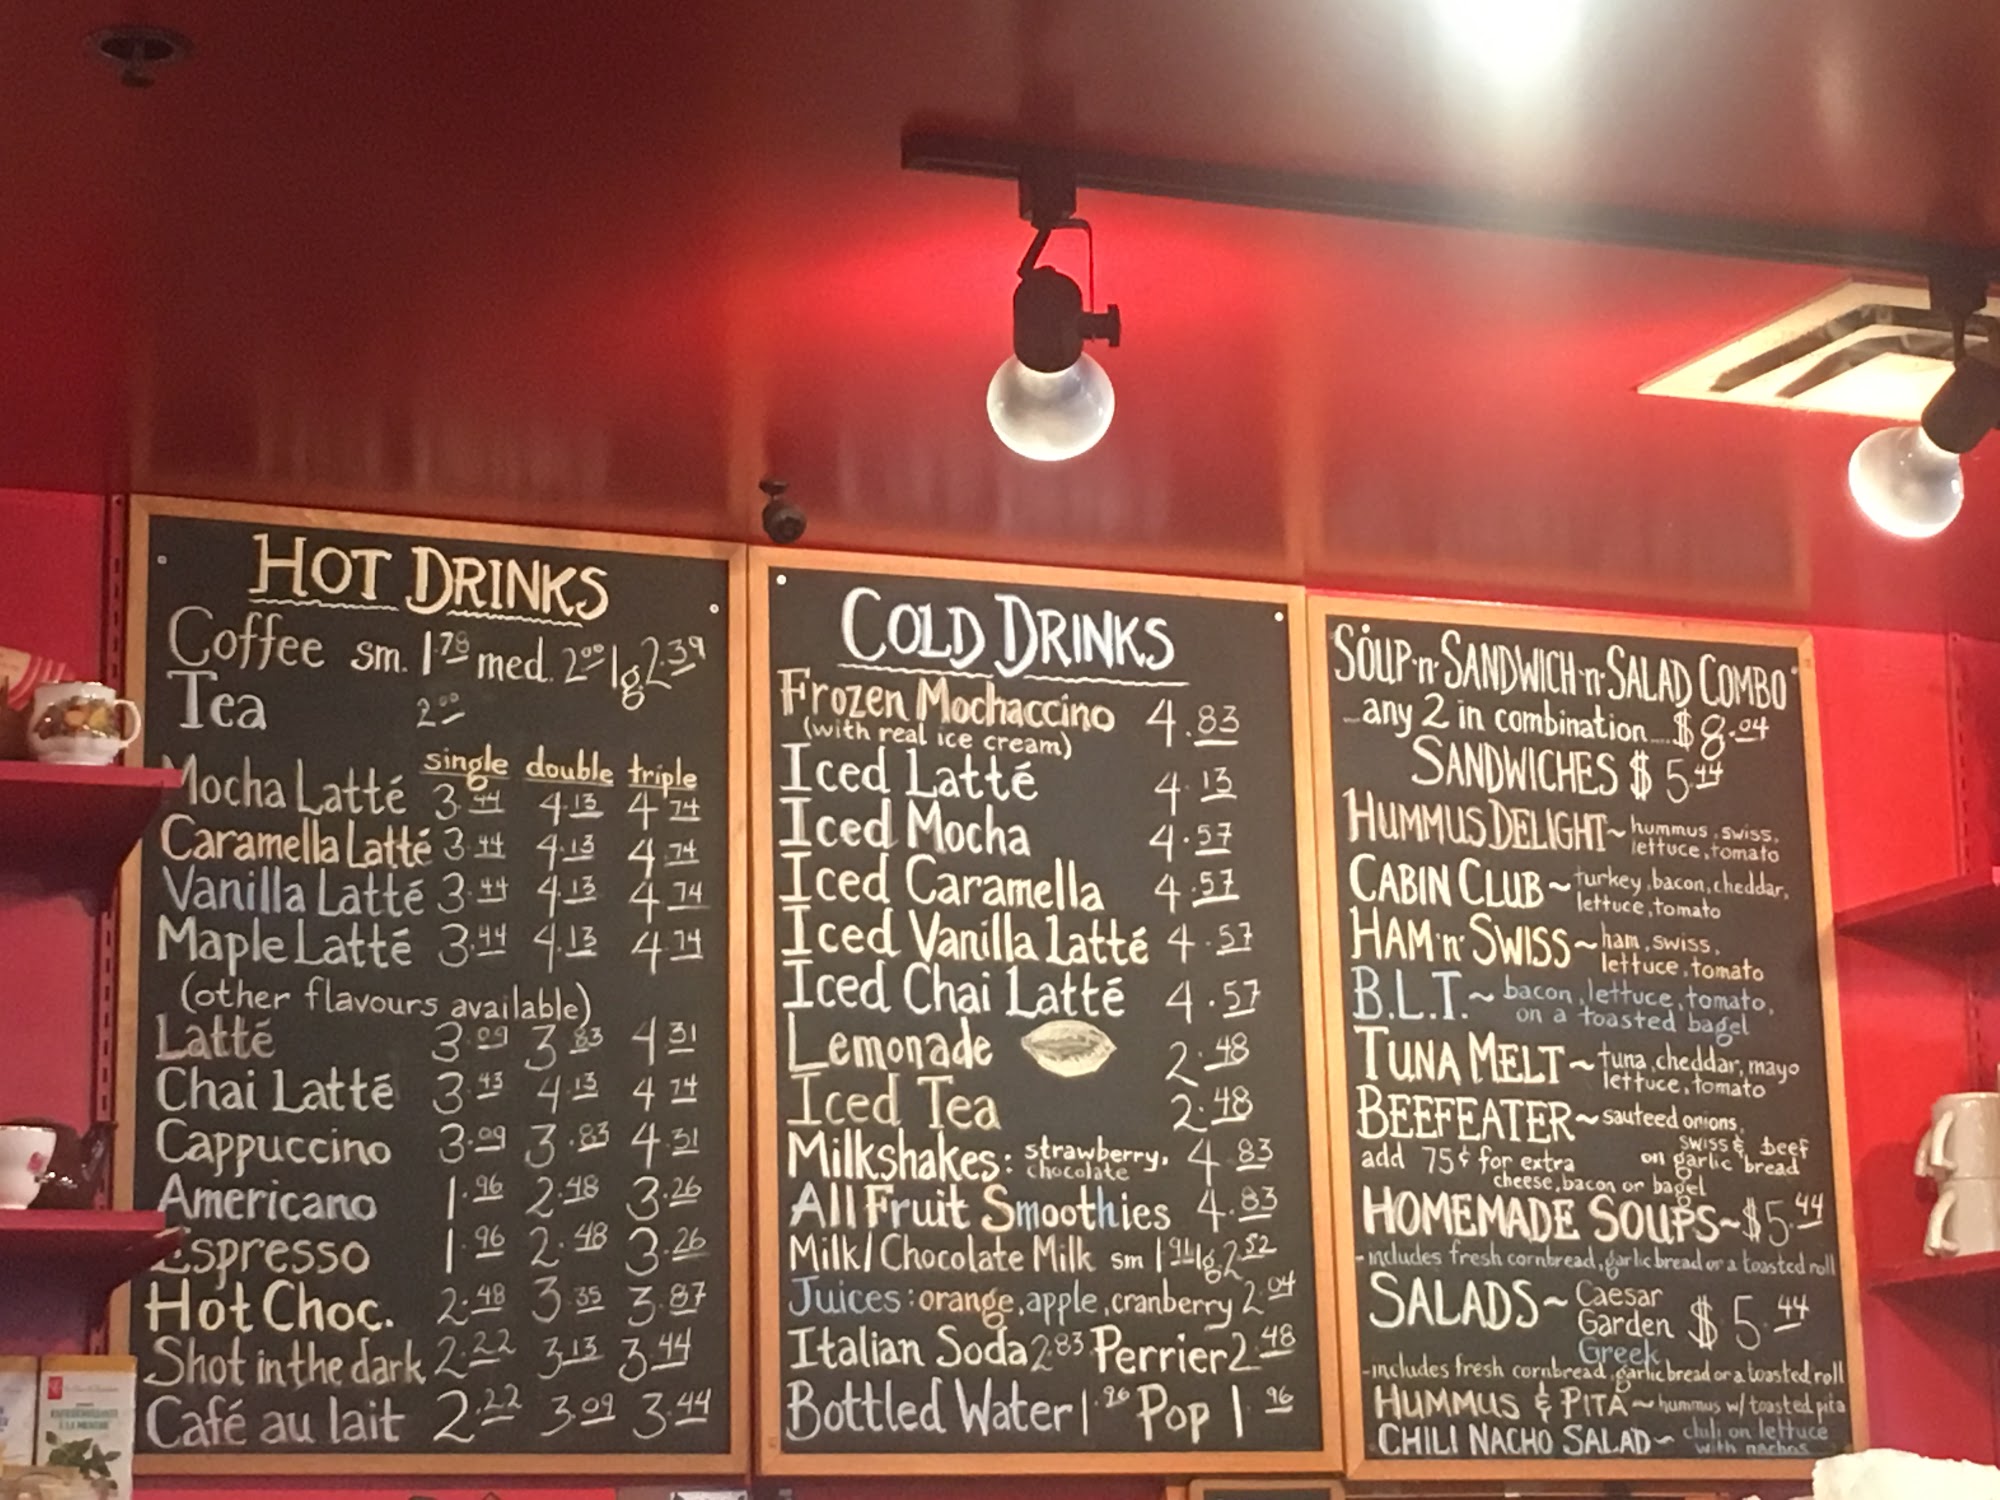 HOT DRINKS
Coffee sm. 1.78 med. 2.00 lg 2.39
Tea 2.00
single double triple
Mocha Latté 3.44 4.13 4.74
Caramella Latté 3.44 4.13 4.74
Vanilla Latté 3.44 4.13 4.74
Maple Latté 3.44 4.13 4.74
(other flavours available)
Latté 3.09 3.83 4.31
Chai Latté 3.43 4.13 4.74
Cappuccino 3.09 3.83 4.31
Americano 1.96 2.48 3.26
Espresso 1.96 2.48 3.26
Hot Choc. 2.48 3.35 3.87
Shot in the dark 2.22 3.13 3.44
Café au lait 2.22 3.09 3.44
COLD DRINKS
Frozen Mochaccino 4.83
(with real ice cream)
Iced Latté 4.13
Iced Mocha 4.57
Iced Caramella 4.57
Iced Vanilla Latté 4.57
Iced Chai Latté 4.57
Lemonade 2.48
Iced Tea 2.48
Milkshakes: strawberry, 4.83
chocolate
All Fruit Smoothies 4.83
Milk/Chocolate Milk sm 1.91 lg. 2.52
Juices: orange, apple, cranberry 2.04
Italian Soda 2.83 Perrier 2.48
Bottled Water 1.96 Pop 1.96
SOUP 'n' SANDWICH 'n' SALAD COMBO
...any 2 in combination... $8.04
SANDWICHES $5.44
HUMMUS DELIGHT~ hummus, swiss,
lettuce, tomato
CABIN CLUB~ turkey, bacon, cheddar,
lettuce, tomato
HAM 'n' SWISS~ ham, swiss,
lettuce, tomato
B.L.T.~ bacon, lettuce, tomato,
on a toasted bagel
TUNA MELT~ tuna, cheddar, mayo
lettuce, tomato
BEEFEATER~ sauteed onions,
swiss & beef
on garlic bread
add 75¢ for extra
cheese, bacon or bagel
HOMEMADE SOUPS~ $5.44
- includes fresh cornbread, garlic bread or a toasted roll
SALADS~ Caesar
Garden $5.44
Greek
-includes fresh cornbread, garlic bread or a toasted roll
HUMMUS & PITA~ hummus w/ toasted pita
CHILI NACHO SALAD~ chili on lettuce
with nachos